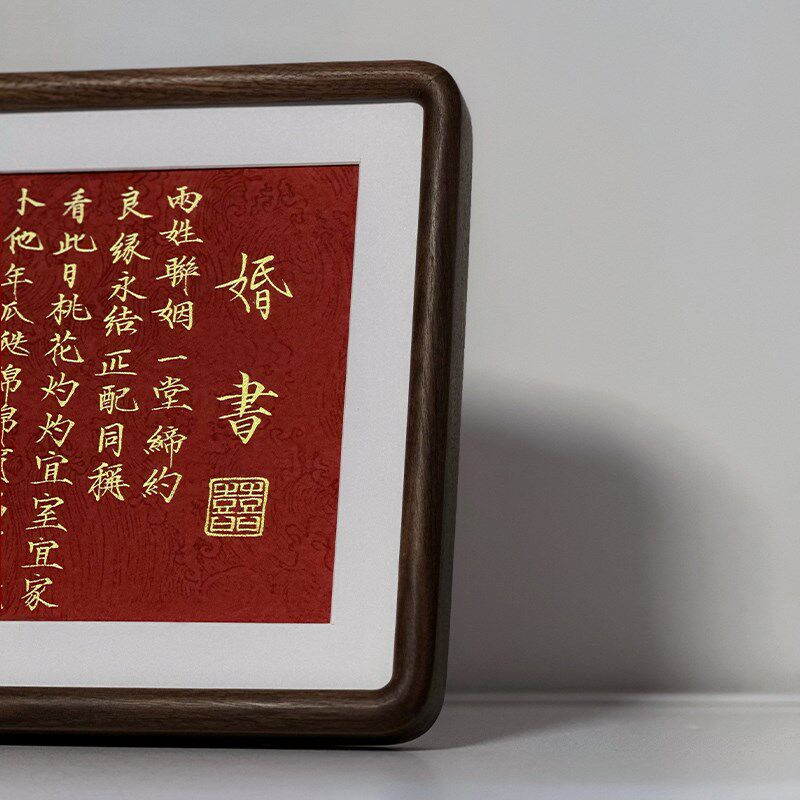 婚書
囍
兩姓聯姻一堂締約
良緣永結匹配同稱
看此日桃花灼灼宜室宜家
卜他年瓜瓞綿綿